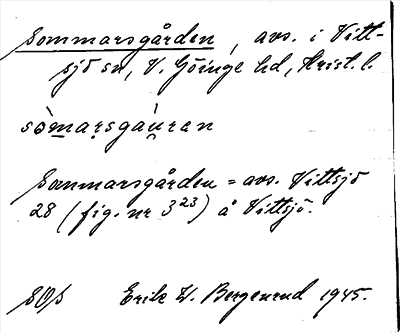 Sommarsgården, avs. i Vitt-
sjö sn, V. Göinge hd, Krist. l.
sòmarsgáuran
Sommarsgården = avs. Vittsjö
28 (fig. nr 3²³) å Vittsjö.
Erik W. Bergenrud 1945.